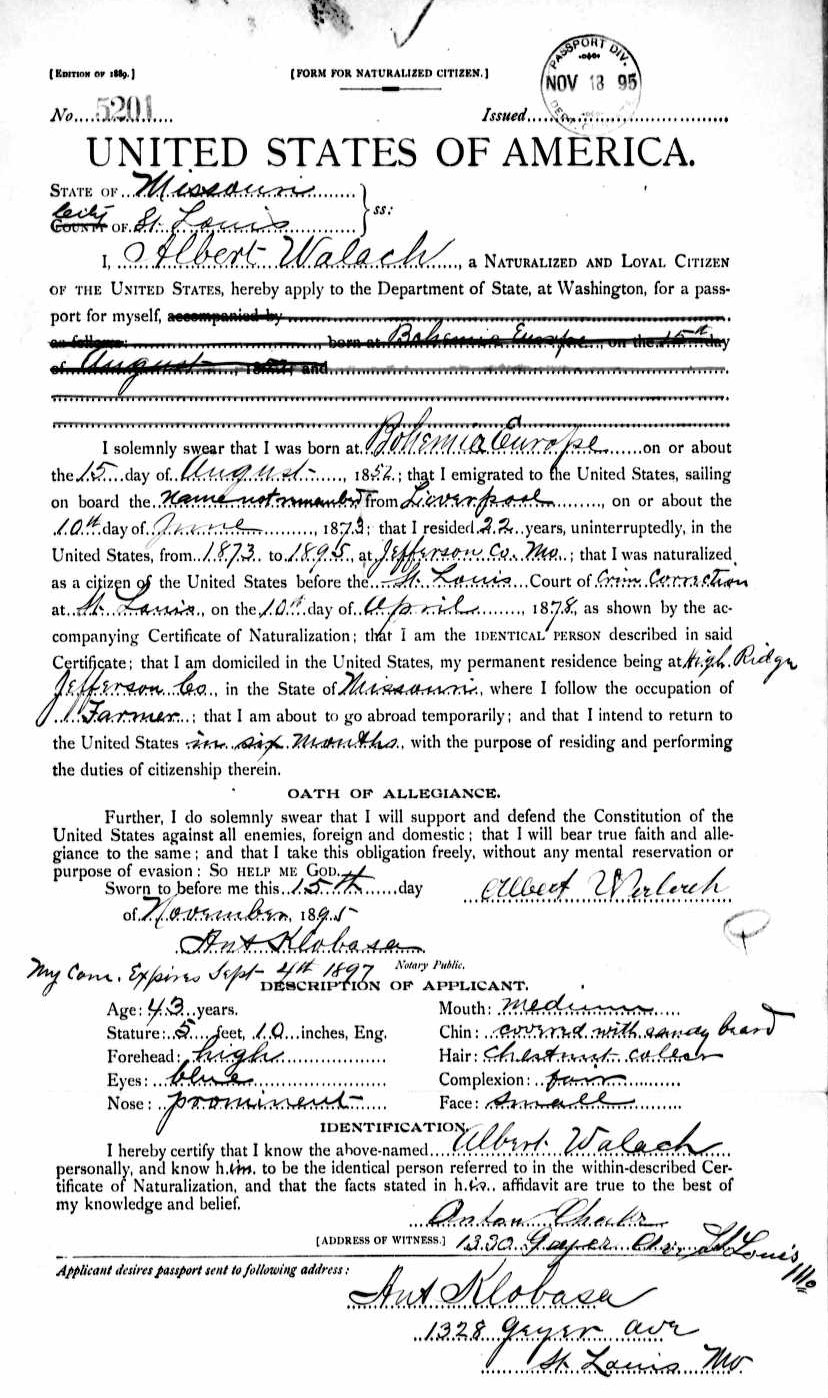 [EDITION OF 1889.] [FORM FOR NATURALIZED CITIZEN.]
PASSPORT DIV.
NOV 18 95
No. 5201 Issued
UNITED STATES OF AMERICA.
STATE OF Missouri
City
COUNTY OF St. Louis ss:
I, Albert Walach, a NATURALIZED AND LOYAL CITIZEN
OF THE UNITED STATES, hereby apply to the Department of State, at Washington, for a pass-
port for myself, accompanied by
as follows: born at Bohemia Europe, on the 15th day
of August, and
I solemnly swear that I was born at Bohemia Europe on or about
the 15 day of August, 1852; that I emigrated to the United States, sailing
on board the name not remembred from Liverpool, on or about the
10th day of June, 1873; that I resided 22 years, uninterruptedly, in the
United States, from 1873 to 1895, at Jefferson Co. Mo.; that I was naturalized
as a citizen of the United States before the St. Louis Court of Crim Correction
at St. Louis, on the 10th day of April, 1878, as shown by the ac-
companying Certificate of Naturalization; that I am the IDENTICAL PERSON described in said
Certificate; that I am domiciled in the United States, my permanent residence being at High Ridge
Jefferson Co., in the State of Missouri, where I follow the occupation of
Farmer; that I am about to go abroad temporarily; and that I intend to return to
the United States in six months, with the purpose of residing and performing
the duties of citizenship therein.
OATH OF ALLEGIANCE.
Further, I do solemnly swear that I will support and defend the Constitution of the
United States against all enemies, foreign and domestic; that I will bear true faith and alle-
giance to the same; and that I take this obligation freely, without any mental reservation or
purpose of evasion: SO HELP ME GOD.
Sworn to before me this 15th day
of November, 1895
Albert
Ant Klobasa
Notary Public.
My Com. Expires Sept 4th 1897
DESCRIPTION OF APPLICANT.
Age: 43 years. Mouth: medium
Stature: 5 feet, 10 inches, Eng. Chin: covered with sandy beard
Forehead: high Hair: chestnut coleor
Eyes: blue Complexion: fair
Nose: prominent Face: small
IDENTIFICATION.
I hereby certify that I know the above-named Albert Walach
personally, and know him to be the identical person referred to in the within-described Cer-
tificate of Naturalization, and that the facts stated in his affidavit are true to the best of
my knowledge and belief.
Anton
[ADDRESS OF WITNESS.] 1330 Geyer Av. St Louis Mo
Applicant desires passport sent to following address:
Ant Klobasa
1328 Geyer ave
St. Louis Mo.